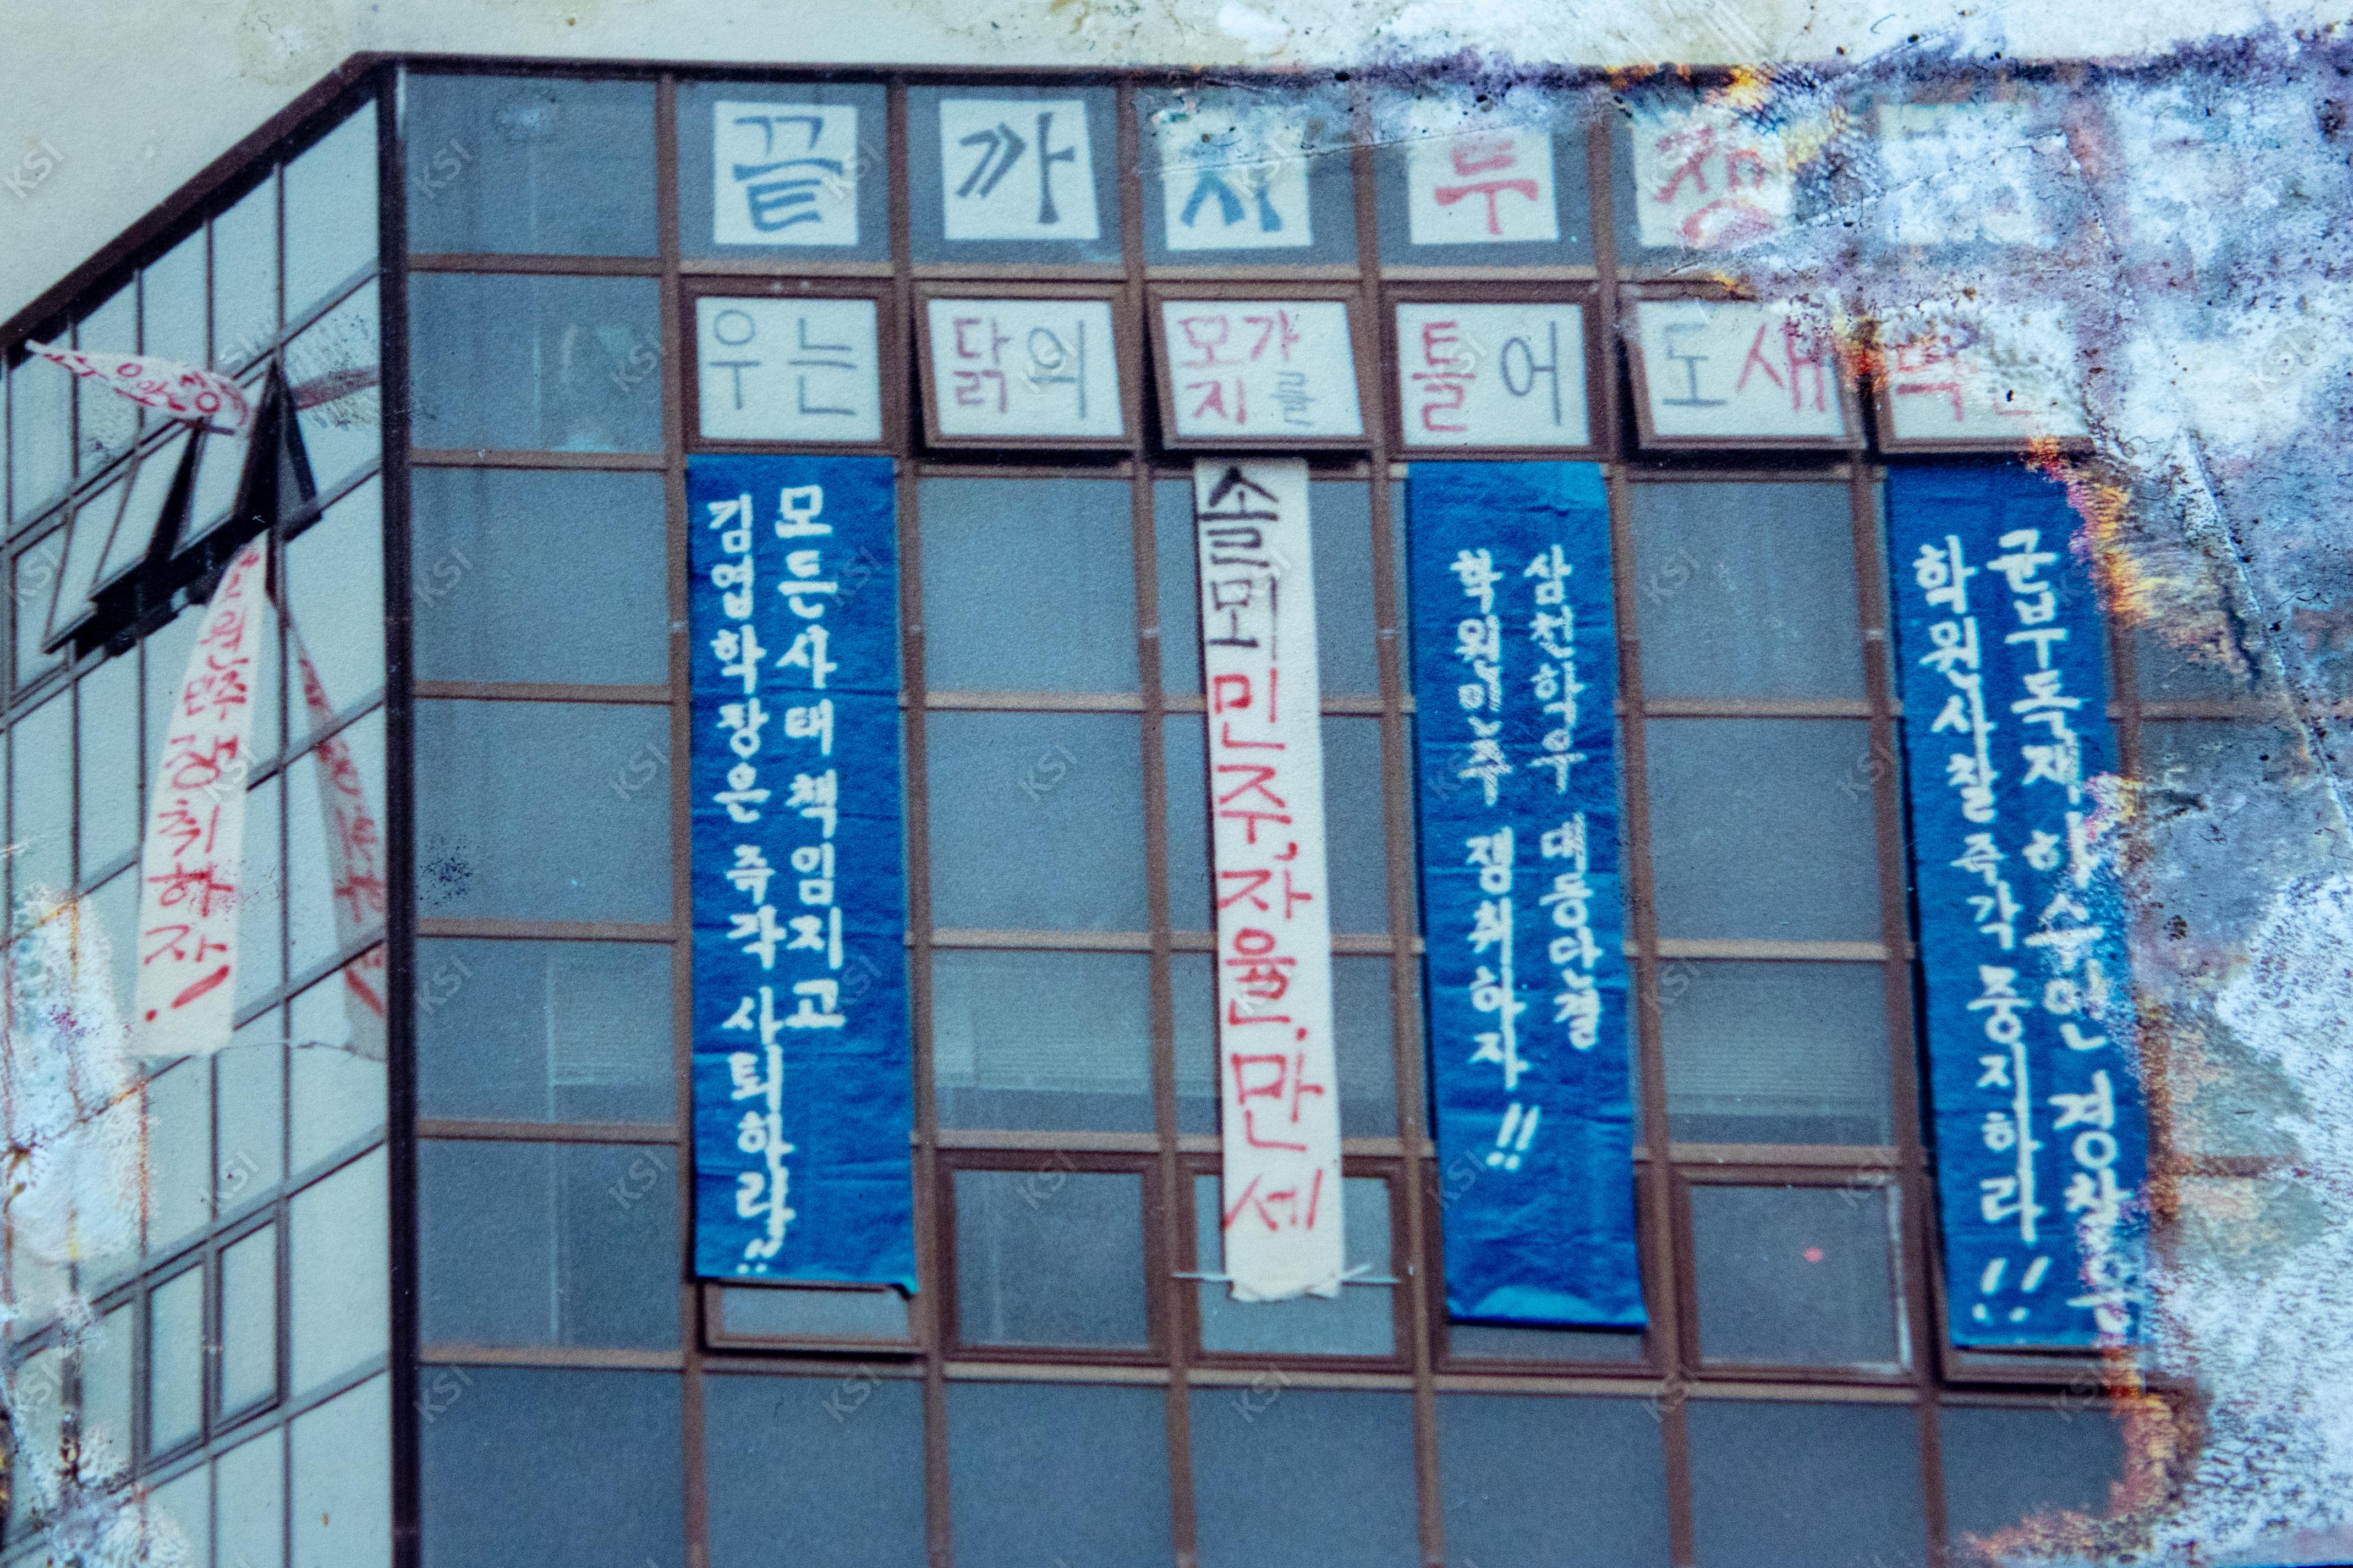 끝까지 투쟁
우는 닭의 모가지를 틀어도 새벽
모든사태 책임지고
김엽학장은 즉각 사퇴하라!!
솔뫼 민주,자율,만세
삼천학우 대동단결
학원민주 쟁취하자!!
군부독재하수인 경찰은
학원사찰 즉각 중지하라!!
학원민주 쟁취하자!
KSI